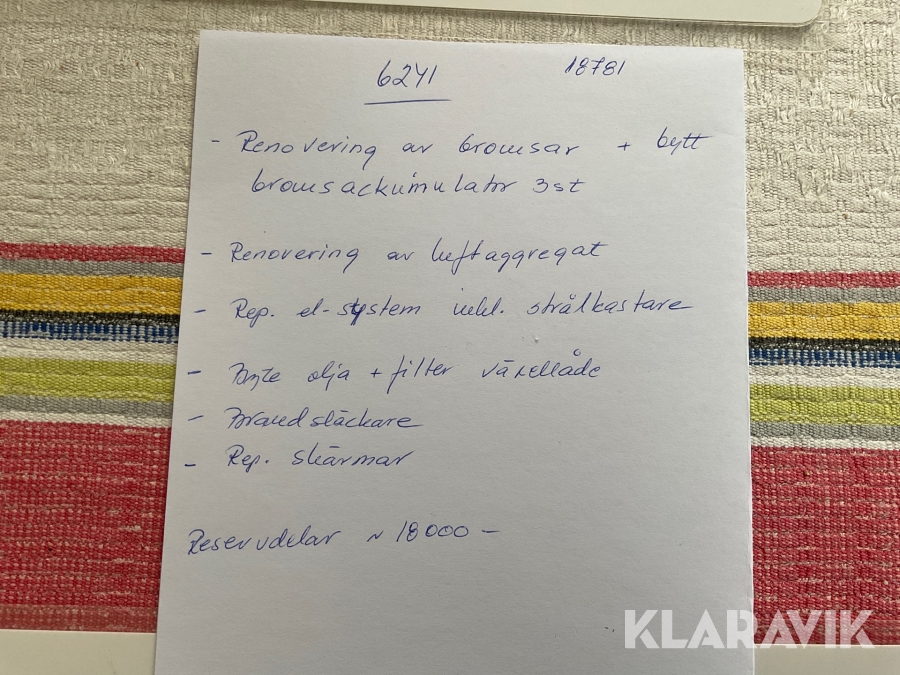 6241 18781
- Renovering av bromsar + bytt
bromsackumulator 3st
- Renovering av luftaggregat
- Rep. el-system inkl. strålkastare
- Byte olja + filter växellåde
- Brandsläckare
- Rep. skärmar
Reservdelar ~ 18000 -
KLARAVIK